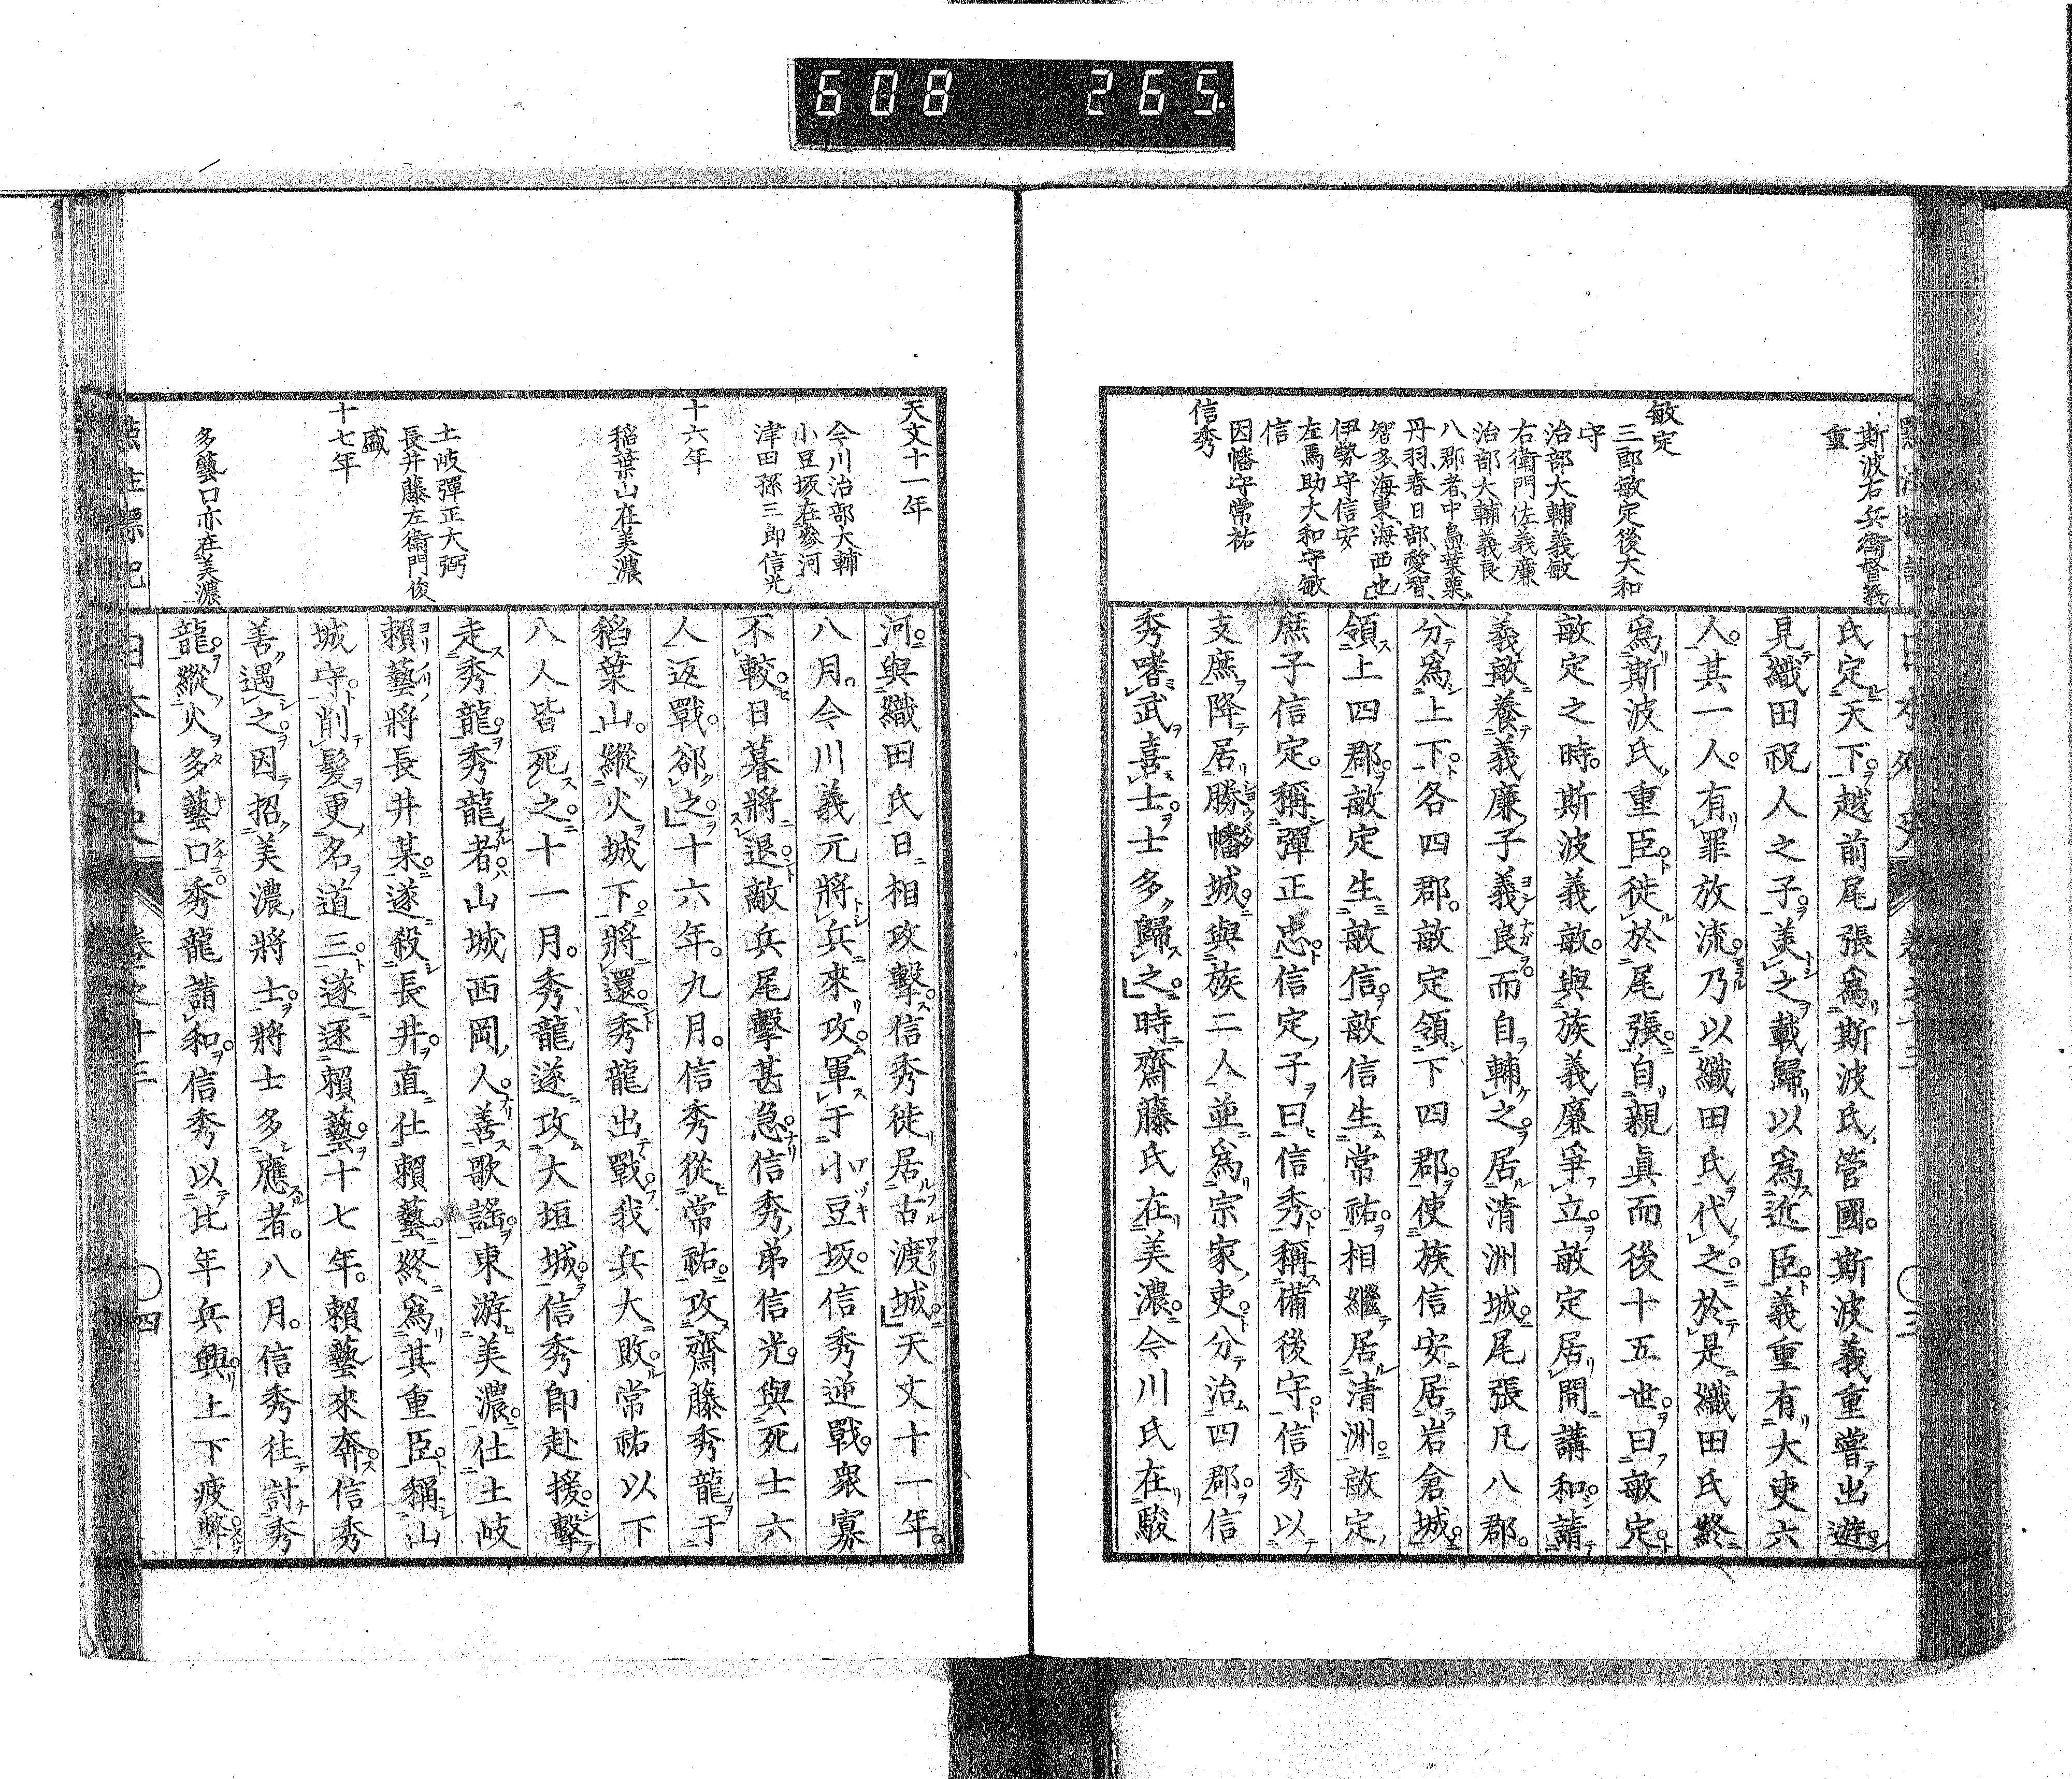 608 265
斯波右兵衛督義
重
敏定
三郎敏定後大和
守
治部大輔義敏
右衛門佐義廉
治部大輔義良
八郡者中島葉栗
丹羽春日部愛智
智多海東海西也
伊勢守信安
左馬助大和守敏
信
因幡守常祐
信秀
氏定天下越前尾張爲斯波氏管國斯波義重嘗出遊
見織田祝人之子美之載歸以爲近臣義重有大吏六
人其一人有罪放流乃以織田氏代之於是織田氏終
爲斯波氏重臣徙於尾張自親眞而後十五世曰敏定
敏定之時斯波義敏與族義廉爭立敏定居間講和請
義敏養義廉子義良而自輔之居清洲城尾張凡八郡
分爲上下各四郡敏定領下四郡使族信安居岩倉城
領上四郡敏定生敏信敏信生常祐相繼居清洲敏定
庶子信定稱彈正忠信定子曰信秀稱備後守信秀以
支庶降居勝幡城與族二人並爲宗家吏分治四郡信
秀嗜武喜士士多歸之時齋藤氏在美濃今川氏在駿
日本外史 卷之十三 〇三
天文十一年
今川治部大輔
小豆坂在參河
津田孫三郎信光
十六年
稻葉山在美濃
土岐彈正大弼
長井藤左衛門俊
盛
十七年
多藝口亦在美濃
河與織田氏日相攻擊信秀徙居古渡城天文十一年
八月今川義元將兵來攻軍于小豆坂信秀逆戰衆寡
不較日暮將退敵兵尾擊甚急信秀弟信光與死士六
人返戰郤之十六年九月信秀從常祐攻齋藤秀龍于
稻葉山縱火城下將還秀龍出戰我兵大敗常祐以下
八人皆死之十一月秀龍遂攻大垣城信秀卽赴援擊
走秀龍秀龍者山城西岡人善歌謠東游美濃仕土岐
賴藝將長井某遂殺長井直仕賴藝終爲其重臣稱山
城守削髮更名道三遂逐賴藝十七年賴藝來奔信秀
善遇之因招美濃將士將士多應者八月信秀往討秀
龍縱火多藝口秀龍請和信秀以比年兵興上下疲弊
日本外史 卷之十三 〇四